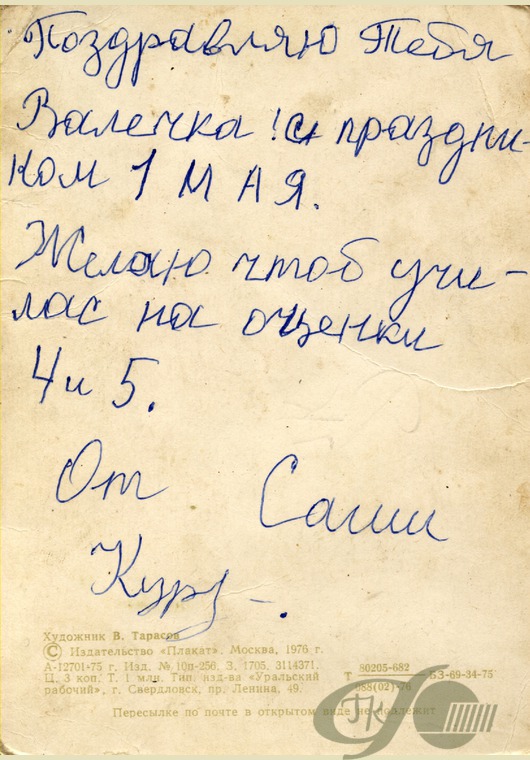 Поздравляю Тебя
Валечка! с праздни-
ком 1 МАЯ.
Желаю чтоб учи-
лас на оценки
4 и 5.
От Саши
Художник В. Тарасов
© Издательство «Плакат». Москва, 1976 г.
А-12701-75 г. Изд. № 10п-256. З. 1705. 3114371.
Ц. 3 коп. Т. 1 млн. Тип. изд-ва «Уральский
рабочий», г. Свердловск, пр. Ленина, 49.
Т 80205-682 БЗ-69-34-75
088(02)-76
Пересылке по почте в открытом виде не подлежит